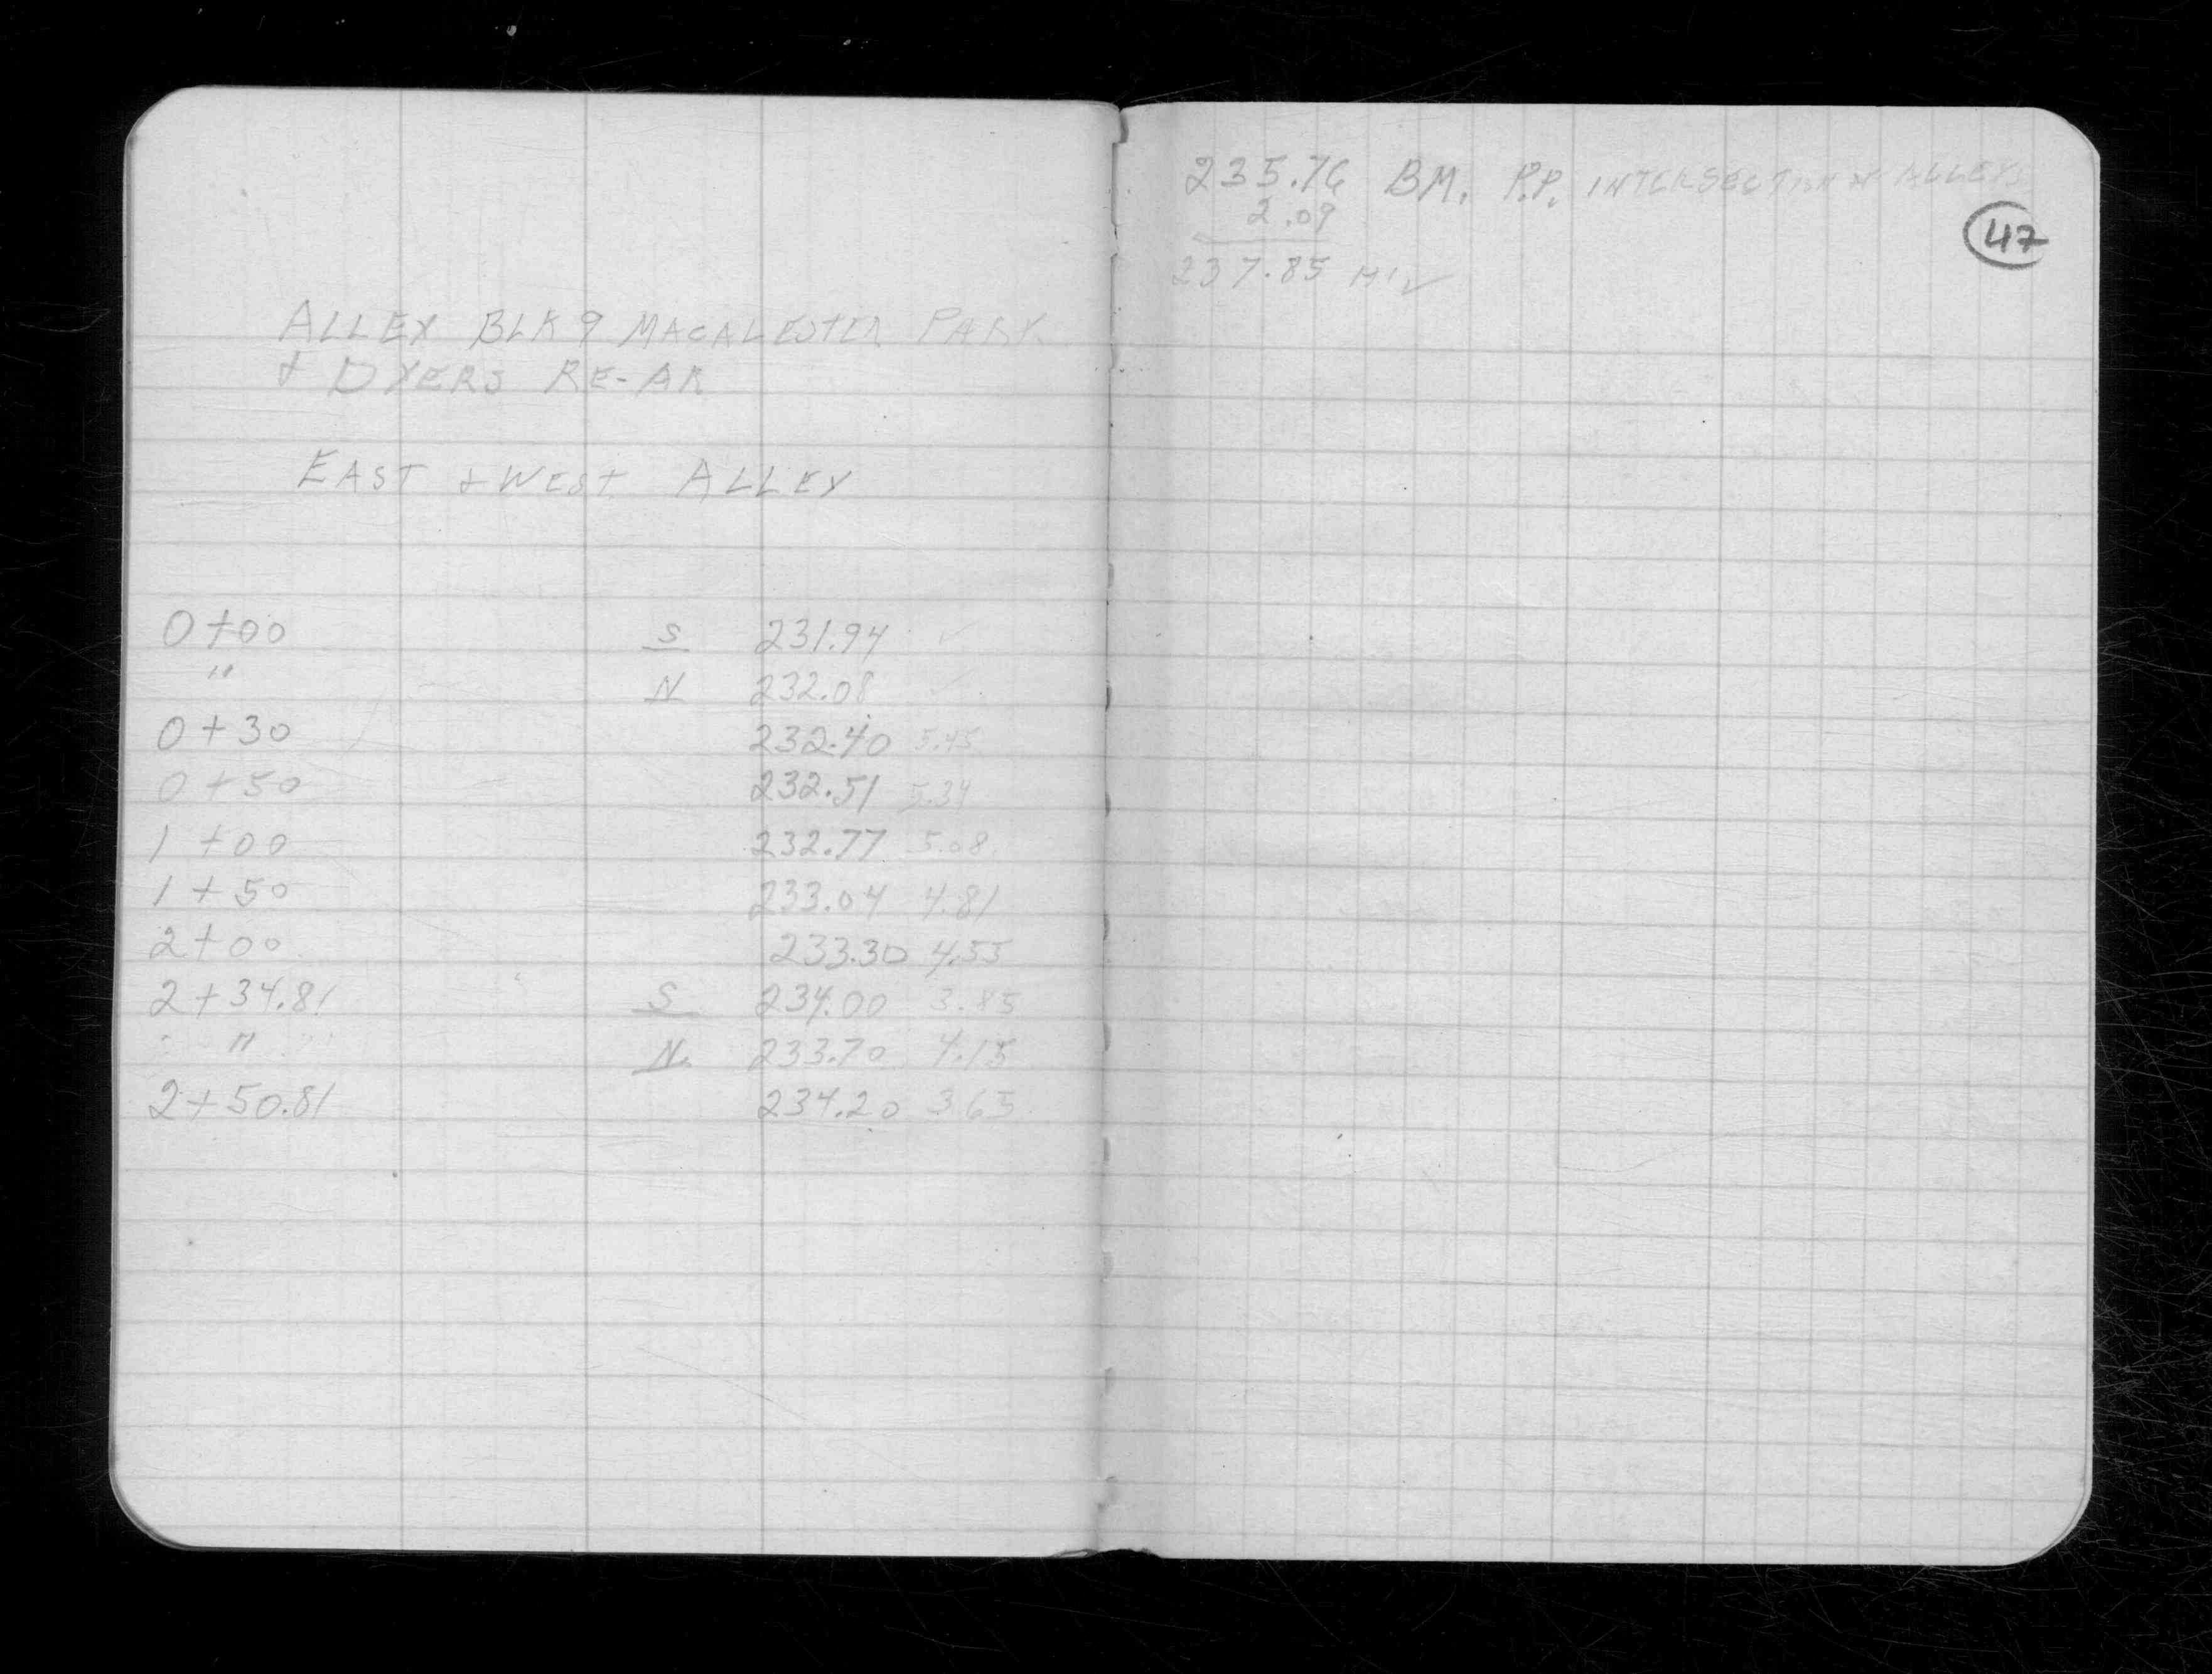 ALLEY BLK 9 MACALESTER PARK
& DYERS RE-AR
EAST & WEST ALLEY
0+00 S 231.94 ✓
" N 232.08 ✓
0+30 232.40 5.45
0+50 232.51 5.34
1+00 232.77 5.08
1+50 233.04 4.81
2+00 233.30 4.55
2+34.81 S 234.00 3.85
" N. 233.70 4.15
2+50.81 234.20 3.65
235.76 BM. P.P. INTERSECTION OF ALLEYS
2.09
47
237.85 HI ✓